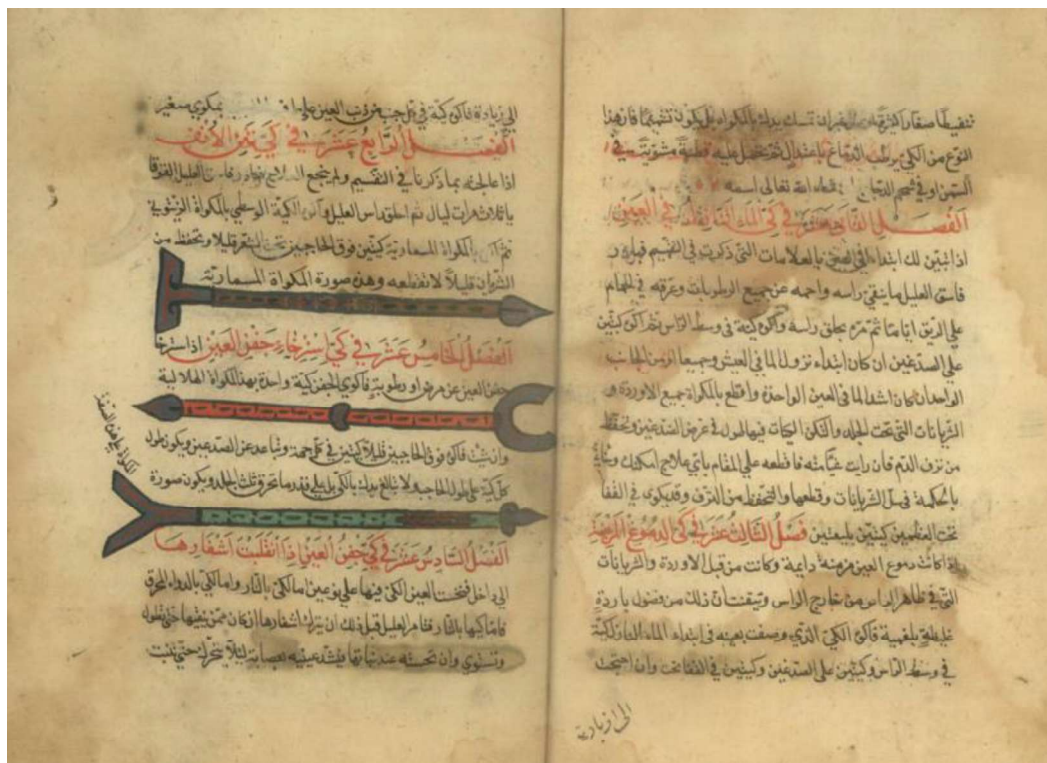 تنفيطا صغارا كثيرة من غير ان تمسك يدك بالمكواة بل يكون تنقيتها فان هذا
النوع من الكي يرطب الدماغ باعتدال ثم تحمل عليه قطنة مشوبة في
السمن او في شحم الدجاج ان شاء الله تعالى اسمه
الفصل الثاني عشر في كي الماء النازل في العين
اذا تبين لك ابتداء الماء في العين بالعلامات التي ذكرت في التقسيم فبادر
فاسق العليل ما ينقي راسه واحمه عن جميع الرطوبات وعرقه في الحمام
علي الريق اياما ثم مره بحلق راسه واكوه كية في وسط الراس ثم اكوه كيتين
علي الصدغين ان كان ابتداء نزول الما في العينين جميعا او من الجانب
الواحد ان كان ابتدا الما في العين الواحدة واقطع بالمكواة جميع الاوردة و
الشريانات التي تحت الجلد ولتكن الكيات فيها طول في عرض الصدغين وتحفظ
من نزف الدم فان رايت شيا منه فاقطعه علي المقام باي علاج امكنك وسناتي
بالحكمة في سل الشريانات وقطعها والتحفظ من النزف وقد يكوى في القفا
تحت العظمين كيتين بليغتين فصل الثالث عشر في كي الدموع المزمنة
اذا كانت دموع العين مزمنة دايمة وكانت من قبل الاوردة والشريانات
التي في ظاهر الراس من خارج الراس وتيقنت ان ذلك من فضول باردة
غليظة بلغمية فاكوه الكي الذي وصفت بعينه في ابتداء الماء النازل كية
في وسط الراس وكيتين علي الصدغين وكيتين في القفا تحت وان احتجت
الى زيادة
الي زيادة فاكوه كية في كل جهة من ذنب العين علي بمكوى صغير
الفصل الرابع عشر في كي نتن الانف
اذا عالجته بما ذكرنا في التقسيم ولم ينجع العلاج فبادر فاسق العليل القوقا
يا ثلاث مرات ليال ثم احلق راس العليل واكوه الكية الوسطى بالمكواة الزيتونية
ثم اكوه بالمكواة المسمارية كيتين فوق الحاجبين تحت الشعر قليلا وتحفظ من
الشريان قليلا لا تقطعه وهذه صورة المكواة المسمارية
الفصل الخامس عشر في كي استرخاء جفن العين اذا استرخا
جفن العين عن مرض او رطوبة فاكوي الجفن كية واحدة بهذه المكواة الهلالية
وان شئت فاكوه فوق الحاجبين قليلا كيتين في كل جهة وتباعد عن الصدغين ويكون طول
كل كية علي طول الحاجب ولا تبالغ يدك بالكي بل علي قدر ما تحرق ثلث الجلد ويكون صورة
المكواة علي هذه الصورة
الفصل السادس عشر في كي جفن العين اذا انقلبت اشفارها
الي داخل فنخست العين الكي فيها علي نوعين اما الكي بالنار واما كي بالدواء المحرق
فاما كيها بالنار فتامر العليل قبل ذلك ان يترك اشفارها ان كان ممن ينتفها حتى تطول
وتستوي وان نخسته عند نباتها فتشد عينيه بعصابة ليلا تتحرك حتى تنبت